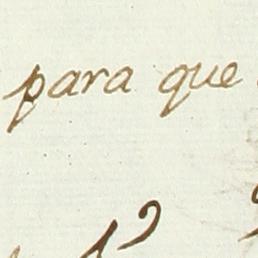 para que